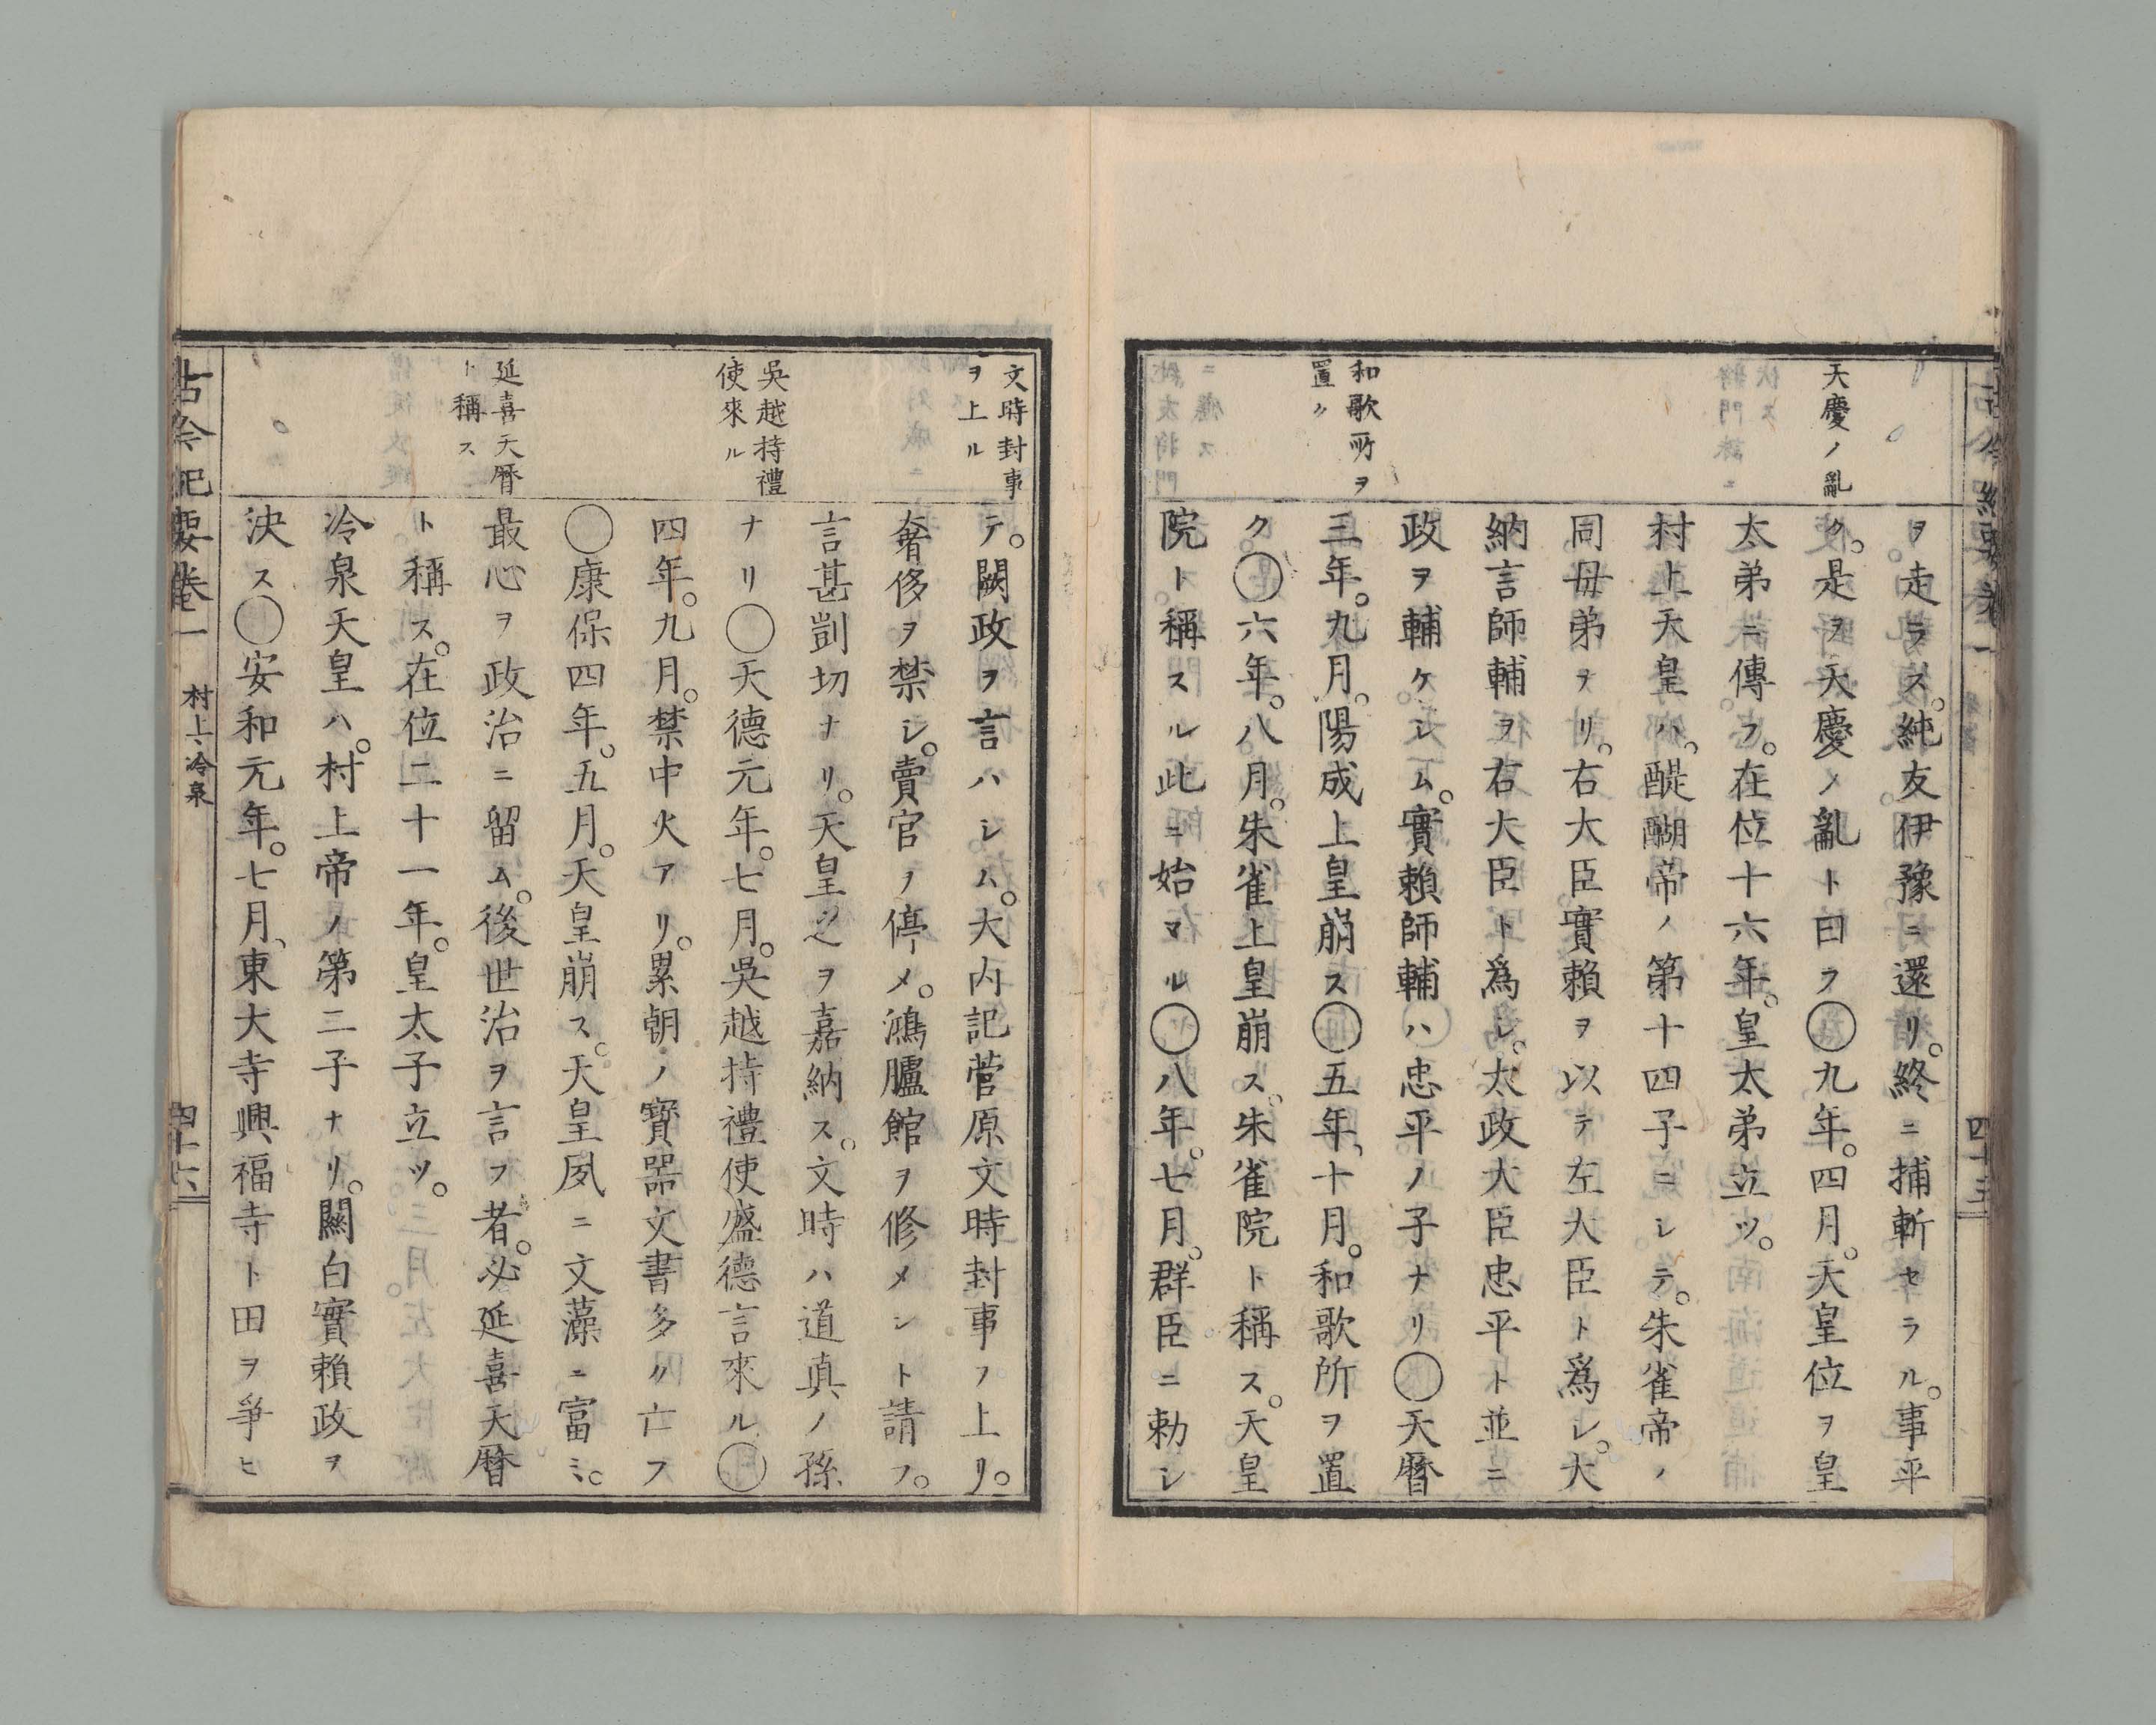 天慶ノ亂
和歌所ヲ
置ク
ヲ走ラス。純友伊豫ニ還リ。終ニ捕斬セラル。事平
ク。是ヲ天慶ノ亂ト曰フ〇九年。四月。天皇位ヲ皇
太弟ニ傳フ。在位十六年。皇太弟立ツ。
村上天皇ハ。醍醐帝ノ第十四子ニシテ。朱雀帝ノ
同母弟ナリ。右大臣實賴ヲ以テ左大臣ト爲シ。大
納言師輔ヲ右大臣ト爲シ。太政大臣忠平ト並ニ
政ヲ輔ケシム。實賴師輔ハ忠平ノ子ナリ〇天曆
三年。九月。陽成上皇崩ス〇五年、十月。和歌所ヲ置
ク〇六年。八月。朱雀上皇崩ス。朱雀院ト稱ス。天皇
院ト稱スル此ニ始マル〇八年。七月。群臣ニ勅シ
文時封事
ヲ上ル
吳越持禮
使來ル
延喜天曆
ト稱ス
テ。闕政ヲ言ハシム。大內記菅原文時封事ヲ上リ。
奢侈ヲ禁シ。賣官ヲ停メ。鴻臚館ヲ修メンㇳ請フ。
言甚剴切ナリ。天皇之ヲ嘉納ス。文時ハ道真ノ孫
ナリ〇天德元年。七月。吳越持禮使盛德言來ル〇
四年。九月。禁中火アリ。累朝ノ寶器文書多ク亡フ
〇康保四年。五月。天皇崩ス。天皇夙ニ文藻ニ富ミ。
最心ヲ政治ニ留ム。後世治ヲ言フ者。必延喜天曆
ト稱ス。在位二十一年。皇太子立ツ。
冷泉天皇ハ。村上帝ノ第二子ナリ。關白實賴政ヲ
決ス〇安和元年。七月、東大寺興福寺ト田ヲ爭ヒ
古今紀要卷一 村上、冷泉 四十六